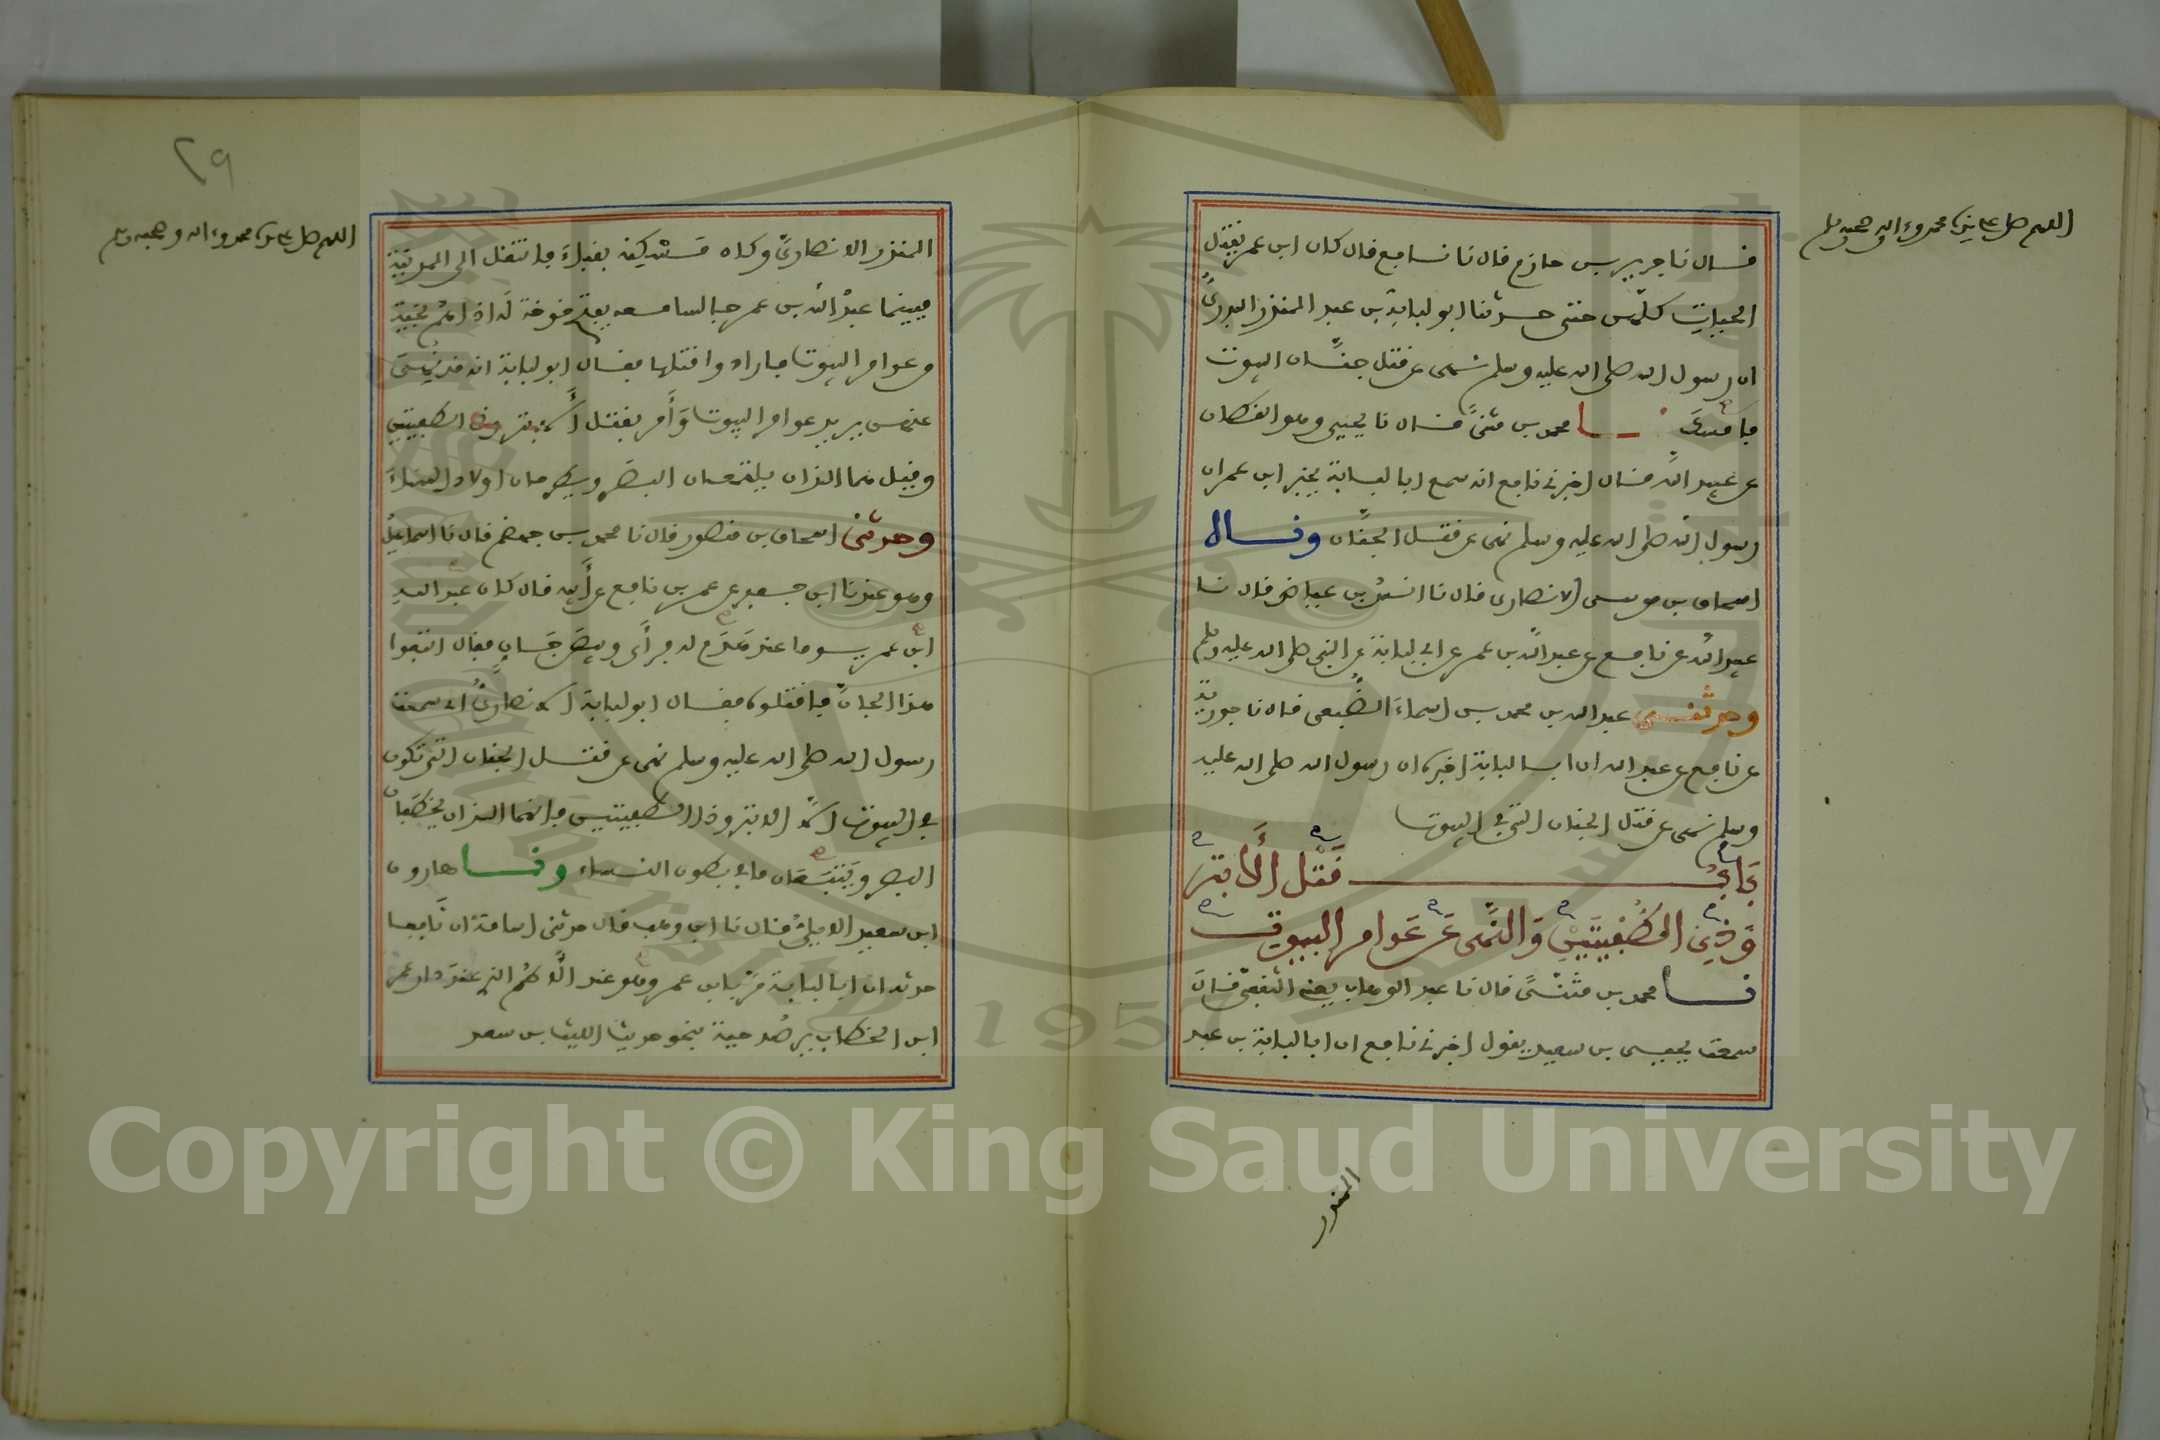 اللهم صل على سيدنا محمد وءاله وصحبه وسلم
قال نا جرير بن حازم قال نا نافع قال كان ابن عمر يقتل
الحيات كلهن حتى حدثنا ابو لبابة بن عبد المنذر البدري
ان رسول الله صلى الله عليه وسلم نهى عن قتل جنان البيوت
فامسك نا محمد بن مثنى قال نا يحيى وهو القطان
عن عبيد الله قال اخبرني نافع انه سمع ابا لبابة يخبر ابن عمر ان
رسول الله صلى الله عليه وسلم نهى عن قتل الجنان وقال
اسحاق بن موسى الانصاري قال نا انس بن عياض قال نا
عبيد الله عن نافع عن عبد الله بن عمر عن ابي لبابة عن النبي صلى الله عليه وسلم
وحدثني عبد الله بن محمد بن اسماء الضبعي قال نا جويرية
عن نافع عن عبد الله ان ابا لبابة اخبره ان رسول الله صلى الله عليه
وسلم نهى عن قتل الجنان التي في البيوت
باب قتل الأبتر
وذي الطفيتين والنهي عن عوامر البيوت
نا محمد بن مثنى قال نا عبد الوهاب يعني الثقفي قال
سمعت يحيى بن سعيد يقول اخبرني نافع ان ابا لبابة بن عبد
المنذر
٢٩
اللهم صل على سيدنا محمد وءاله وصحبه وسلم
المنذر الانصاري وكان مسكنه بقباء فانتقل الى المدينة
فبينما عبد الله بن عمر جالسا معه يفتح خوخة له اذا هم بحية
من عوامر البيوت فارادوا قتلها فقال ابو لبابة انه قد نهي
عنهن يريد عوامر البيوت وأمر بقتل الأبتر وذي الطفيتين
وقيل هما اللذان يلتمعان البصر ويطرحان اولاد النساء
وحدثني اسحاق بن منصور قال نا محمد بن جهضم قال نا اسماعيل
وهو عندنا ابن جعفر عن عمر بن نافع عن أبيه قال كان عبد الله
ابن عمر يوما عند هدم له فرأى وبيص جان فقال اتبعوا
هذا الجان فاقتلوه فقال ابو لبابة الانصاري اني سمعت
رسول الله صلى الله عليه وسلم نهى عن قتل الجنان التي تكون
في البيوت الا الابتر وذا الطفيتين فانهما اللذان يخطفان
البصر ويتتبعان ما في بطون النساء ونا هارون
ابن سعيد الايلي قال نا ابن وهب قال حدثني اسامة ان نافعا
حدثه ان ابا لبابة مر بابن عمر وهو عند الأطم الذي عند دار عمر
ابن الخطاب يرصد حية بنحو حديث الليث بن سعد
Copyright © King Saud University
1957